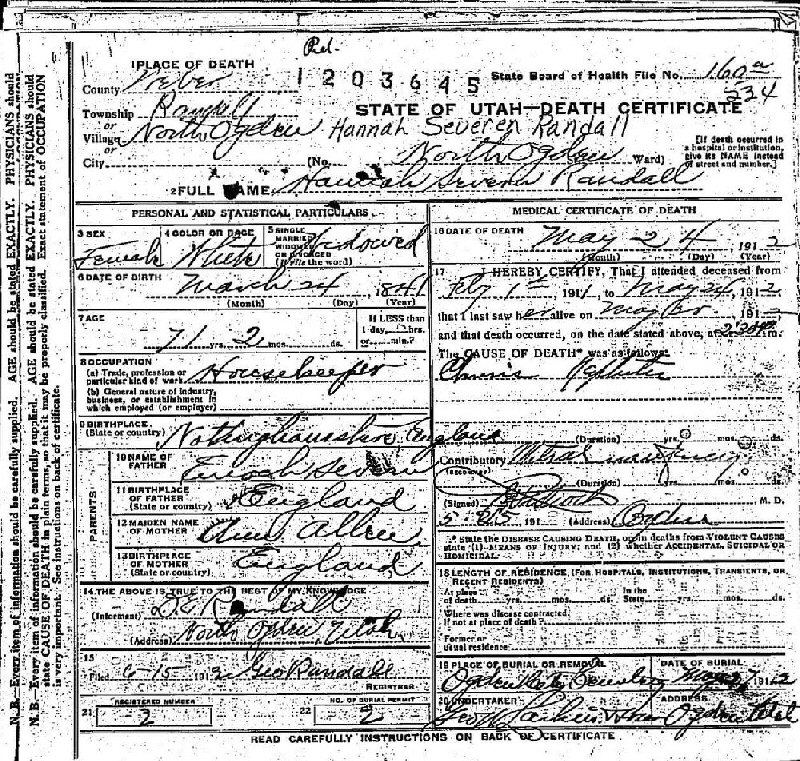 Ret.
1 PLACE OF DEATH
County Weber
1203645
State Board of Health File No. 160 a
234
Township
or
Village North Ogden
or
STATE OF UTAH—DEATH CERTIFICATE
Hannah Severen Randall
City (No. North Ogden Ward)
[If death occurred in a hospital or institution, give its NAME instead of street and number.]
2 FULL NAME Hannah Severn Randall
PERSONAL AND STATISTICAL PARTICULARS
3 SEX Female
4 COLOR OR RACE White
5 SINGLE MARRIED WIDOWED OR DIVORCED (Write the word) Widowed
6 DATE OF BIRTH March 24 1841
(Month) (Day) (Year)
7 AGE
71 yrs. 2 mos. ds.
If LESS than 1 day, hrs. or min.?
8 OCCUPATION
(a) Trade, profession or particular kind of work Housekeeper
(b) General nature of industry, business, or establishment in which employed (or employer)
9 BIRTHPLACE (State or country) Nottinghamshire England
PARENTS
10 NAME OF FATHER Enoch Severn
11 BIRTHPLACE OF FATHER (State or country) England
12 MAIDEN NAME OF MOTHER Ann Allen
13 BIRTHPLACE OF MOTHER (State or country) England
14 THE ABOVE IS TRUE TO THE BEST OF MY KNOWLEDGE
(Informant) Randall
(Address) North Ogden, Utah
15
Filed 6-15 1912 Geo Randall
REGISTRAR
21 REGISTERED NUMBER 2
22 NO. OF BURIAL PERMIT 2
MEDICAL CERTIFICATE OF DEATH
16 DATE OF DEATH May 24 1912
(Month) (Day) (Year)
17 I HEREBY CERTIFY, That I attended deceased from
Feby 1st 1911 to May 24, 1912
that I last saw her alive on May 1912
and that death occurred, on the date stated above, at m.
The CAUSE OF DEATH* was as follows:
(Duration) yrs. mos. ds.
Contributory Mitral
(Secondary)
(Duration) yrs. mos. ds.
(Signed) M. D.
5-25 191 (Address) Ogden
* State the DISEASE CAUSING DEATH, or in deaths from VIOLENT CAUSES state (1) MEANS OF INJURY; and (2) whether ACCIDENTAL, SUICIDAL or HOMICIDAL.
18 LENGTH OF RESIDENCE (FOR HOSPITALS, INSTITUTIONS, TRANSIENTS, OR RECENT RESIDENTS)
At place of death yrs. mos. ds. In the State yrs. mos. ds.
Where was disease contracted if not at place of death?
Former or usual residence
19 PLACE OF BURIAL OR REMOVAL Ogden City Cemetery
DATE OF BURIAL May 27 1912
20 UNDERTAKER
ADDRESS Ogden Utah
READ CAREFULLY INSTRUCTIONS ON BACK OF CERTIFICATE
N. B.—Every item of information should be carefully supplied. AGE should be stated EXACTLY. PHYSICIANS should
N. B.—Every item of information should be carefully supplied. AGE should be stated EXACTLY. PHYSICIANS should
state CAUSE OF DEATH in plain terms, so that it may be properly classified. Exact statement of OCCUPATION
is very important. See instructions on back of certificate.